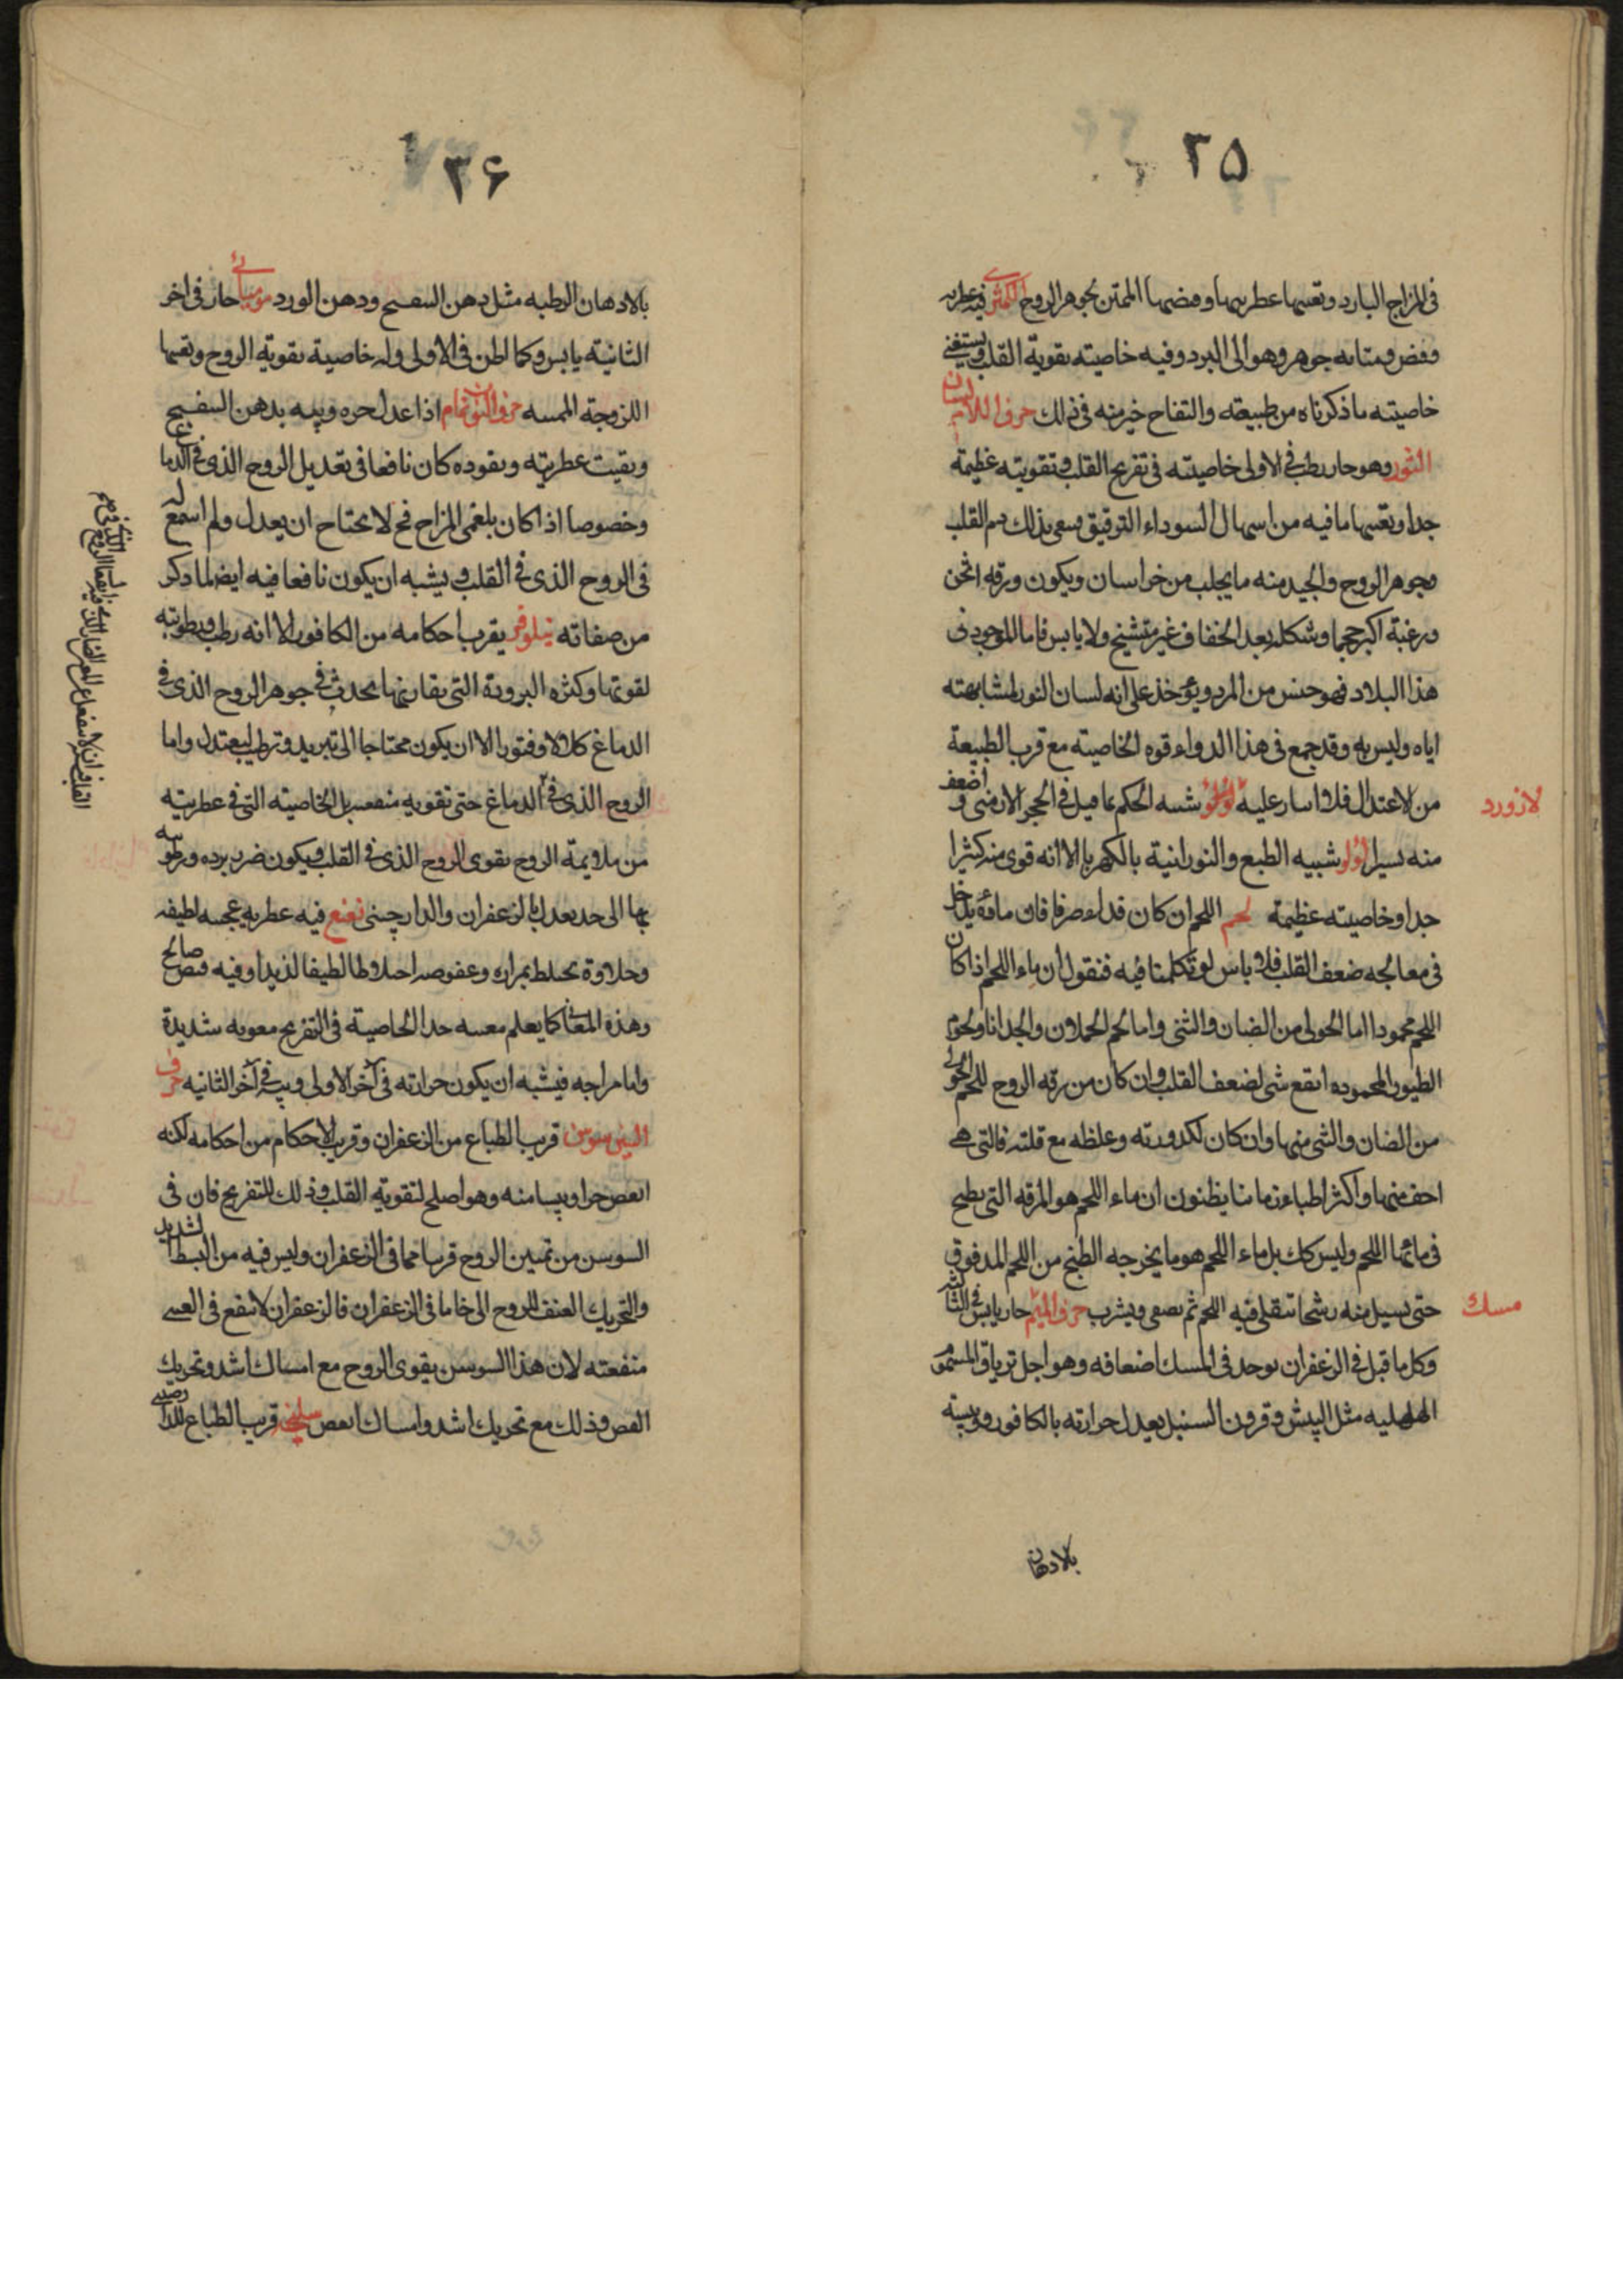 ٢٥
فى المزاج البارد وتعينها عطريتها وقبضها الممتن لجوهر الروح الكمثرى فيه عطرية
وقبض ومتانه جوهر وهو الى البرد وفيه خاصيته تقوية القلب ويستغنى
خاصيته ما ذكرناه من طبيعته والتفاح خير منه فى ذلك حرف اللام لسان
الثور وهو حار رطب فى الاولى خاصيته فى تفريح القلب وتقويته عظيمة
جدا وتعينها ما فيه من اسهال السوداء الرقيق فينقى بذلك دم القلب
وجوهر الروح والجيد منه ما يجلب من خراسان ويكون ورقه اثخن
وزغبه اكبر حجما وشكله بعد الجفاف غير متشنج ولا يابس فاما الموجود فى
هذا البلاد فهو جنس من المرو ويؤخذ على انه لسان الثور لمشابهته
اياه وليس به وقد جمع فى هذا الدواء قوه الخاصيته مع قرب الطبيعة
من الاعتدال فلا اسار عليه لازورد يشبه الحكم بما قيل فى الحجر الارمنى واضعف
لازورد
منه يسيرا لؤلؤ شبيه الطبع والنورانية بالكهربا الا انه قوى منه كثيرا
جدا وخاصيته عظيمة لحم اللحم ان كان قداء صرفا فان ماؤه يدخل
فى معالجه ضعف القلب فلا باس لو تكلمنا فيه فنقول ان ماء اللحم اذا كان
اللحم محمودا اما الحولى من الضان والثنى واما لحم الحملان والجدا انا ولحوم
الطيور المحموده انفع شى لضعف القلب وان كان من رقه الروح للحم الحولى
من الضان والثنى منها وان كان لكدورته وغلظه مع قلته فالتى هى
اخف منها واكثر اطباء زماننا يظنون ان ماء اللحم هو المرقه التى يطبخ
فى مائها اللحم وليس كك بل ماء اللحم هو ما يخرجه الطبخ من اللحم المدقوق
حتى يسيل منه رشحا تنقلى فيه اللحم ثم يصفى ويشرب حرف الميم حار يابس فى الثالثة
مسك
وكل ما قيل فى الزعفران يوجد فى المسك اضعافه وهو اجل ترياق المسموم
الهلهليه مثل البيش وقرون السنبل يعدل حرارته بالكافور ويبسه
بالادهان
٣۶
بالادهان الرطبه مثل دهن البنفسج ودهن الورد موميائى حار فى اخر
الثانيه يابس وكما اظن فى الاولى وله خاصية تقوية الروح وتعينها
اللزوجة الممتنه حرف النون نمام اذا عدل حره ويبسه بدهن البنفسج
وبقيت عطريته ونفوذه كان نافعا فى تعديل الروح الذى فى الدماغ
وخصوصا اذا كان بلغمى المزاج فح لا يحتاج ان يعدل ولم اسمع له
فى الروح الذى فى القلب ويشبه ان يكون نافعا فيه ايضا لما ذكر
من صفاته نيلوفر يقرب احكامه من الكافور الا انه رطب ورطوبته
لقوتها وكثره البرودة التى يقارنها يحدث فى جوهر الروح الذى فى
الدماغ كلالا وفتورا الا ان يكون محتاجا الى تبريد وترطيب ليعتدل واما
الروح الذى فى الدماغ حتى تقويه منفعته بل الخاصيته التى فى عطريته
من ملايمة الروح يقوى الروح الذى فى القلب ويكون ضرر برده ورطوبته
بها الى حد يعدل بالزعفران والدارچينى نعنع فيه عطريه عجيبه لطيفه
وحلاوة يختلط بمراره وعفوصه اختلاطا لطيفا لذيذا وفيه قبض صالح
وهذه المعانى كما يعلم معينه جدا لخاصيته فى التفريح معونه شديدة
واما مزاجه فيشبه ان يكون حرارته فى آخر الاولى ويبسه فى آخر الثانيه حرف
السين سوسن قريب الطباع من الزعفران وقريب الاحكام من احكامه لكنه
انقص حرا ويبسا منه وهو اصلح لتقويه القلب وذلك للتفريح فان فى
السوسن من تمتين الروح قريبا مما فى الزعفران وليس فيه من البسط الشديد
والتحريك العنف للروح الى خارج ما فى الزعفران فالزعفران لا ينفع فى الغشى
منفعته لان هذا السوسن يقوى الروح مع امساك اشد وتحريك
انقص وذلك مع تحريك اشد وامساك انقص سليخه قريب الطباع للدارصينى